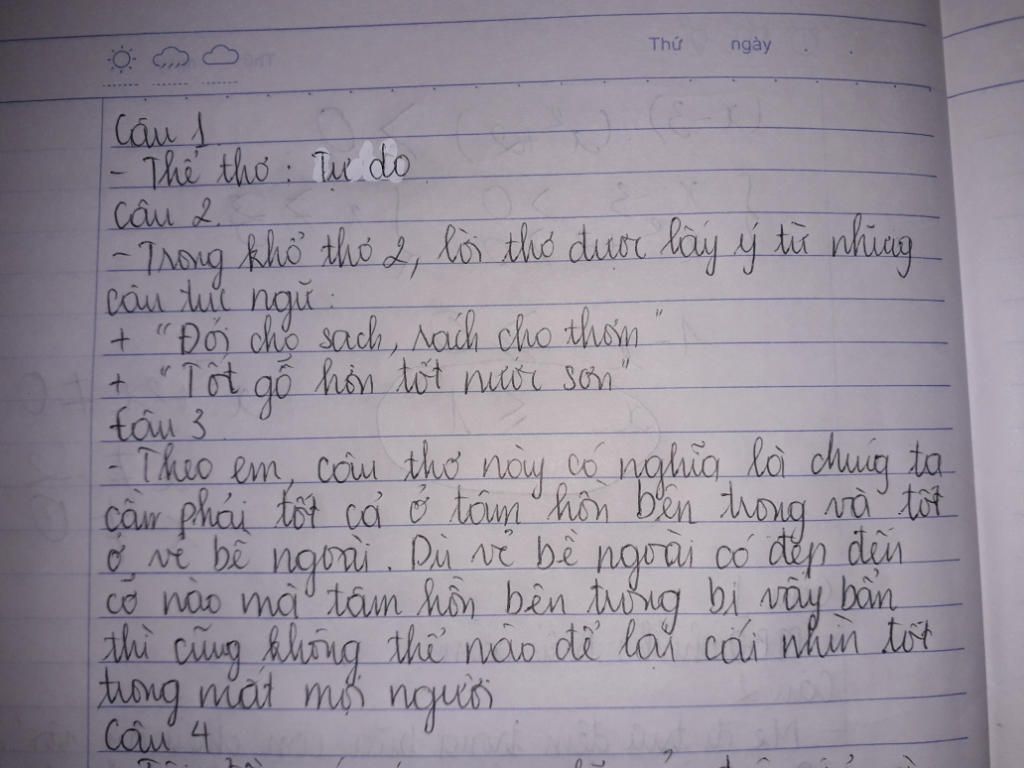 Thứ ngày . .
Câu 1
- Thể thơ : Tự do
Câu 2.
- Trong khổ thơ 2, lời thơ được lấy ý từ những
câu tục ngữ :
+ "Đói cho sạch, rách cho thơm"
+ "Tốt gỗ hơn tốt nước sơn"
Câu 3
- Theo em, câu thơ này có nghĩa là chúng ta
cần phải tốt cả ở tâm hồn bên trong và tốt
ở vẻ bề ngoài. Dù vẻ bề ngoài có đẹp đến
cỡ nào mà tâm hồn bên trong bị vấy bẩn
thì cũng không thể nào để lại cái nhìn tốt
trong mắt mọi người
Câu 4